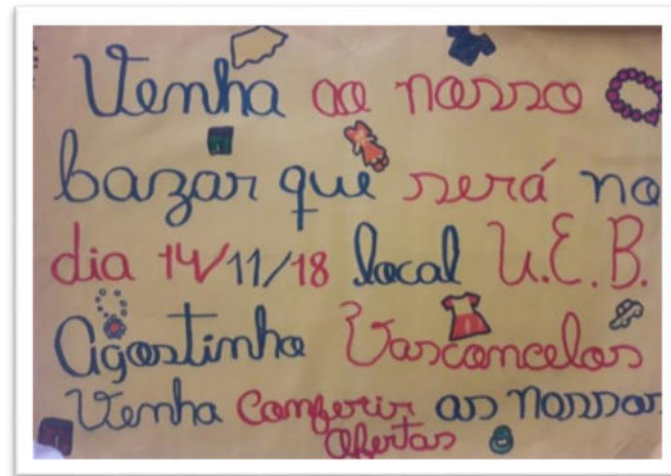 Venha ao nosso
bazar que será no
dia 14/11/18 local U.E.B.
Agostinho Vasconcelos
Venha Conferir as nossas
Ofertas